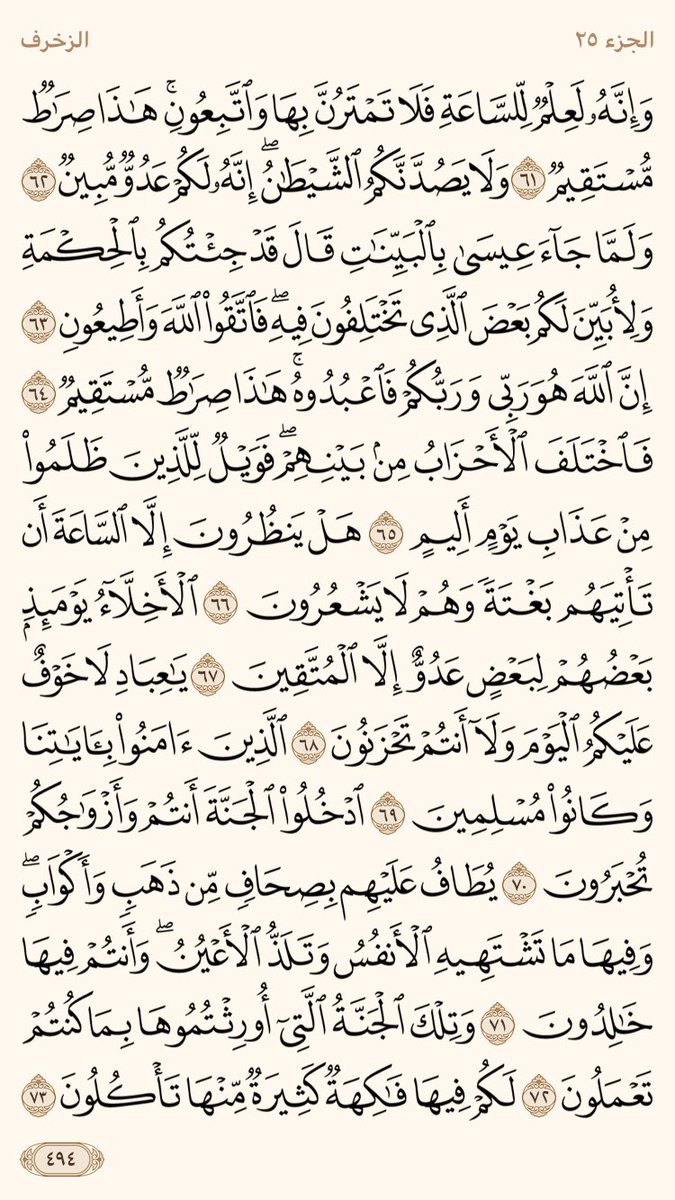 الجزء ٢٥
الزخرف
وَإِنَّهُۥ لَعِلۡمٞ لِّلسَّاعَةِ فَلَا تَمۡتَرُنَّ بِهَا وَٱتَّبِعُونِۚ هَٰذَا صِرَٰطٞ
مُّسۡتَقِيمٞ ٦١ وَلَا يَصُدَّنَّكُمُ ٱلشَّيۡطَٰنُۖ إِنَّهُۥ لَكُمۡ عَدُوّٞ مُّبِينٞ ٦٢
وَلَمَّا جَآءَ عِيسَىٰ بِٱلۡبَيِّنَٰتِ قَالَ قَدۡ جِئۡتُكُم بِٱلۡحِكۡمَةِ
وَلِأُبَيِّنَ لَكُم بَعۡضَ ٱلَّذِي تَخۡتَلِفُونَ فِيهِۖ فَٱتَّقُواْ ٱللَّهَ وَأَطِيعُونِ ٦٣
إِنَّ ٱللَّهَ هُوَ رَبِّي وَرَبُّكُمۡ فَٱعۡبُدُوهُۚ هَٰذَا صِرَٰطٞ مُّسۡتَقِيمٞ ٦٤
فَٱخۡتَلَفَ ٱلۡأَحۡزَابُ مِنۢ بَيۡنِهِمۡۖ فَوَيۡلٞ لِّلَّذِينَ ظَلَمُواْ
مِنۡ عَذَابِ يَوۡمٍ أَلِيمٍ ٦٥ هَلۡ يَنظُرُونَ إِلَّا ٱلسَّاعَةَ أَن
تَأۡتِيَهُم بَغۡتَةٗ وَهُمۡ لَا يَشۡعُرُونَ ٦٦ ٱلۡأَخِلَّآءُ يَوۡمَئِذِۭ
بَعۡضُهُمۡ لِبَعۡضٍ عَدُوٌّ إِلَّا ٱلۡمُتَّقِينَ ٦٧ يَٰعِبَادِ لَا خَوۡفٌ
عَلَيۡكُمُ ٱلۡيَوۡمَ وَلَآ أَنتُمۡ تَحۡزَنُونَ ٦٨ ٱلَّذِينَ ءَامَنُواْ بِـَٔايَٰتِنَا
وَكَانُواْ مُسۡلِمِينَ ٦٩ ٱدۡخُلُواْ ٱلۡجَنَّةَ أَنتُمۡ وَأَزۡوَٰجُكُمۡ
تُحۡبَرُونَ ٧٠ يُطَافُ عَلَيۡهِم بِصِحَافٖ مِّن ذَهَبٖ وَأَكۡوَابٖۖ
وَفِيهَا مَا تَشۡتَهِيهِ ٱلۡأَنفُسُ وَتَلَذُّ ٱلۡأَعۡيُنُۖ وَأَنتُمۡ فِيهَا
خَٰلِدُونَ ٧١ وَتِلۡكَ ٱلۡجَنَّةُ ٱلَّتِيٓ أُورِثۡتُمُوهَا بِمَا كُنتُمۡ
تَعۡمَلُونَ ٧٢ لَكُمۡ فِيهَا فَٰكِهَةٞ كَثِيرَةٞ مِّنۡهَا تَأۡكُلُونَ ٧٣
٤٩٤